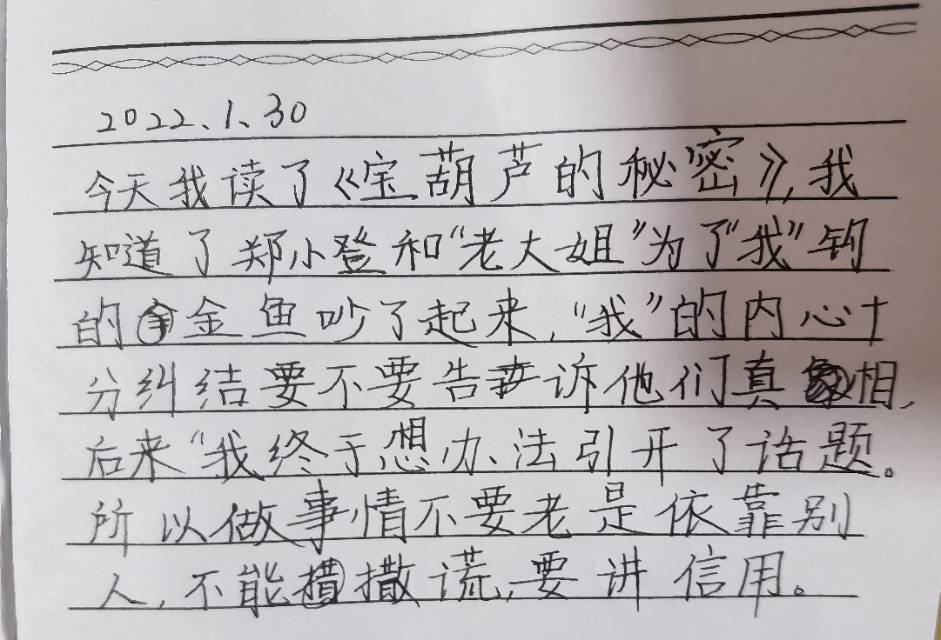 2022.1.30
今天我读了《宝葫芦的秘密》,我
知道了郑小登和“老大姐”为了“我”钓
的金鱼吵了起来,“我”的内心十
分纠结要不要告诉他们真相,
后来“我终于想办法引开了话题。
所以做事情不要老是依靠别
人,不能撒谎,要讲信用。